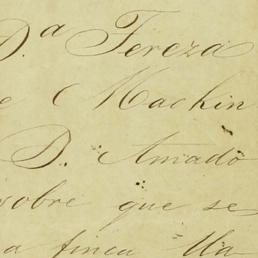 D.ª Tereza
e Machin
D. Amado
sobre que se
a finca "Ha